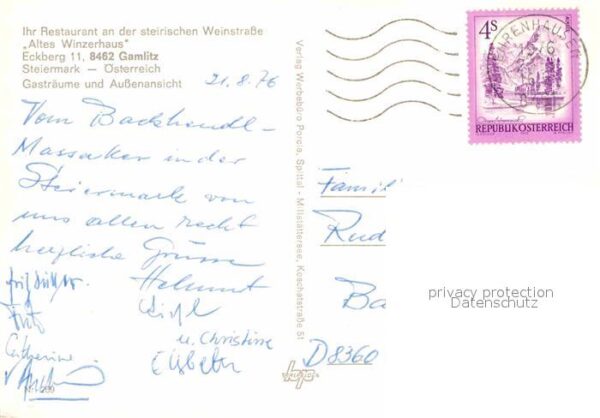 Ihr Restaurant an der steirischen Weinstraße
„Altes Winzerhaus"
Eckberg 11, 8462 Gamlitz
Steiermark — Österreich
Gasträume und Außenansicht
21.8.76
Vom Backhendl-
Massaker in der
Steiermark von
uns allen recht
herzliche Grüsse
Helmut
Fritz
u. Christine
Catherine
Elisabeth
Verlag Werbebüro Porcia, Spittal - Millstättersee, Koschatstraße 51
4S
REPUBLIK ÖSTERREICH
Famil
Rud
Ba
D8360
privacy protection
Datenschutz